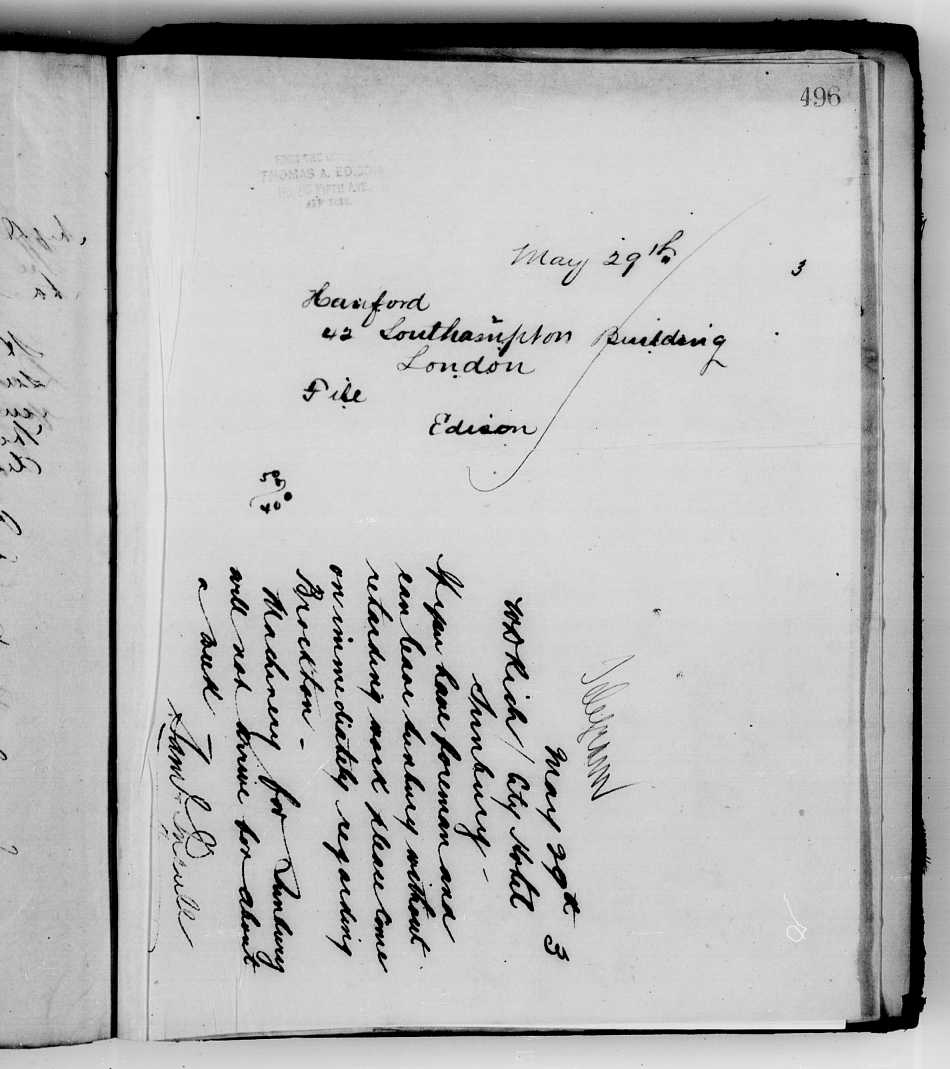 496
FROM THE
THOMAS A. EDISON
FIFTH AVE.
NEW YORK.
May 29th 3
Hanford
42 Southampton Building
London
File
Edison
Telegram
May 29th 3
W D Rich / City Hotel
Sunbury -
If you have foreman and
can leave Sunbury without
retarding work please come
on immediately regarding
Brockton -
Machinery for Sunbury
will not arrive for about
a week
Saml Insull